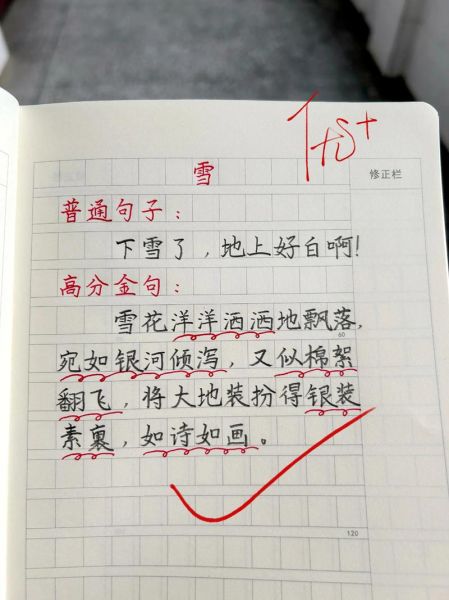 修正栏
雪
普通句子：
下雪了，地上好白啊！
高分金句：
雪花洋洋洒洒地飘落，
60
宛如银河倾泻，又似棉絮
翻飞，将大地装扮得银装
素裹，如诗如画。
120